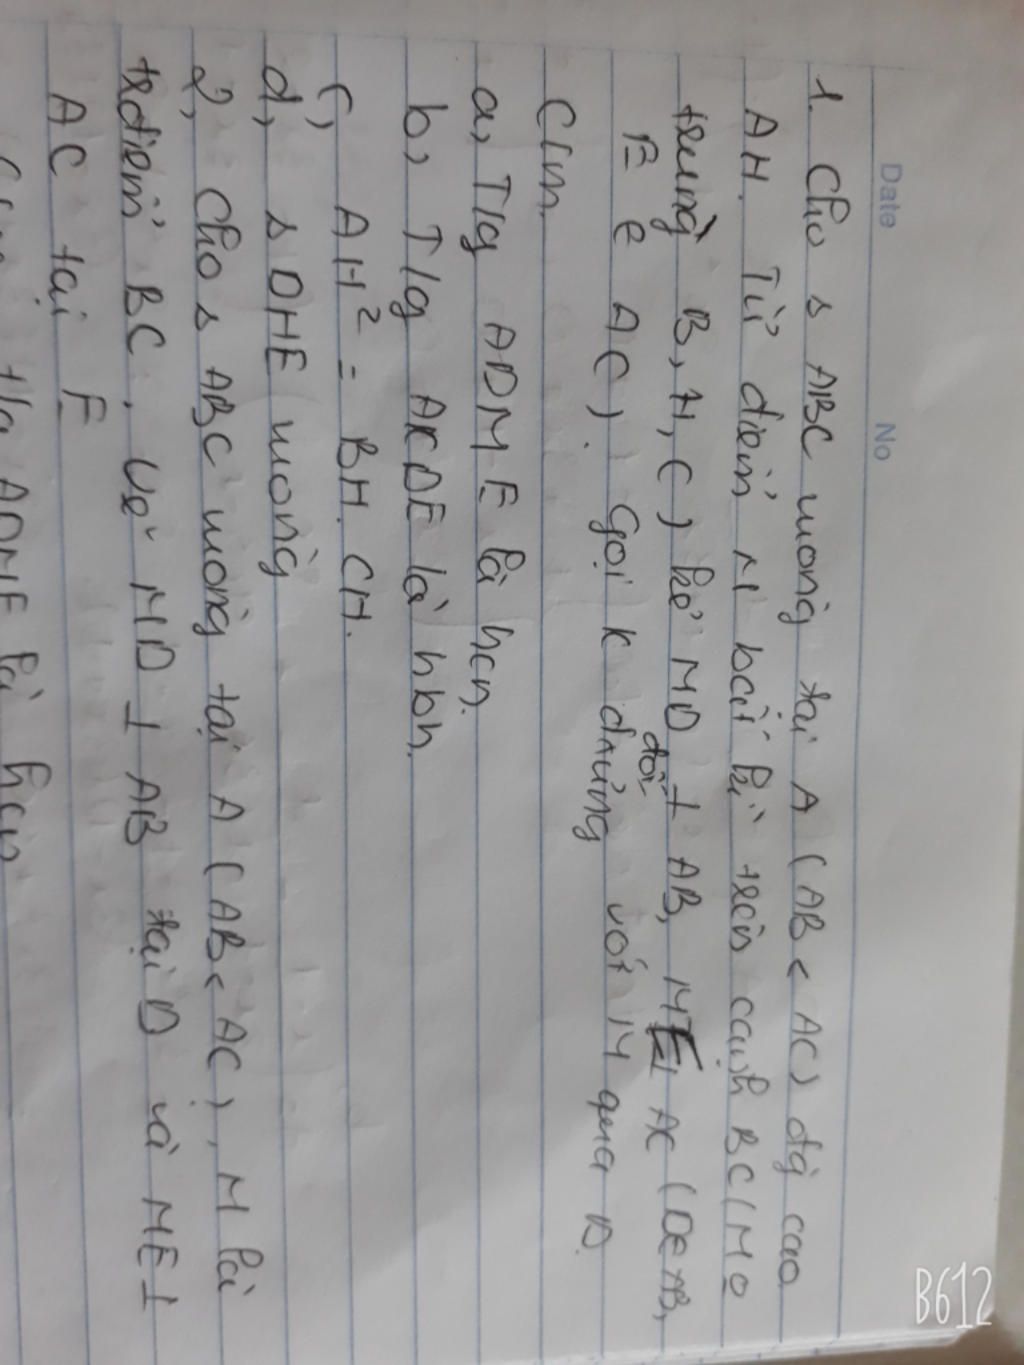 Date No
1. Cho Δ ABC vuông tại A (AB < AC) đg cao
AH. Từ điểm M bất kì trên cạnh BC (M o
trùng B, H, C) kẻ MD ⊥ AB, ME ⊥ AC (D ∈ AB,
E ∈ AC). Gọi K đxứng đối với M qua D.
Cm.
a, T/g ADME là hcn.
b, T/g AKDE là hbh.
c, AH² = BH. CH.
d, Δ DHE vuông
2, Cho Δ ABC vuông tại A (AB < AC), M là
trđiểm BC. Vẽ MD ⊥ AB tại D và ME ⊥
AC tại E
ADME là hcn
B612